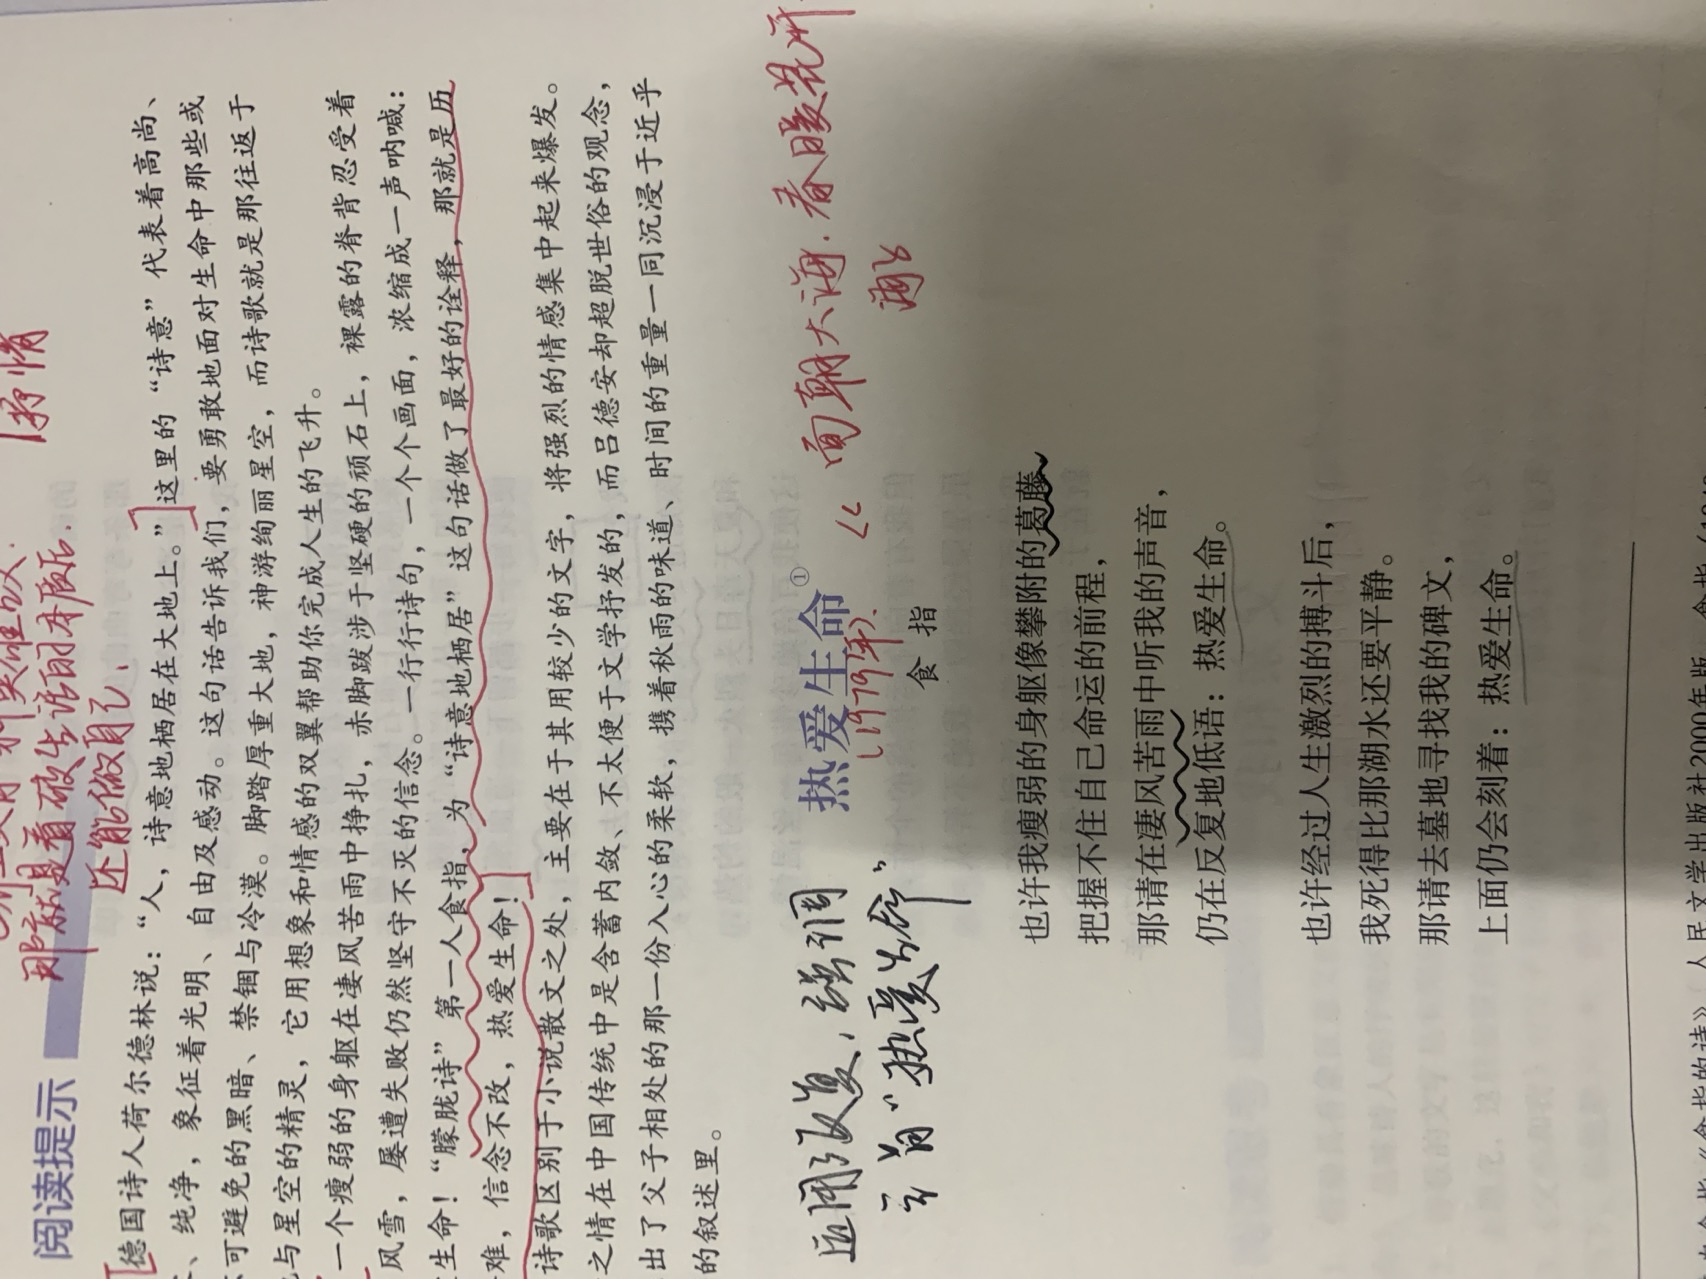 抒情
那就是看破生活的本质.
还能做自己.
阅读提示
德国诗人荷尔德林说：“人，诗意地栖居在大地上。”这里的“诗意”代表着高尚、
、纯净，象征着光明、自由及感动。这句话告诉我们，要勇敢地面对生命中那些或
可避免的黑暗、禁锢与冷漠。脚踏厚重大地，神游绚丽星空，而诗歌就是那往返于
与星空的精灵，它用想象和情感的双翼帮助你完成人生的飞升。
一个瘦弱的身躯在凄风苦雨中挣扎，赤脚跋涉于坚硬的顽石上，裸露的脊背忍受着
风雪，屡遭失败仍然坚守不灭的信念。一行行诗句，一个个画面，浓缩成一声呐喊：
生命！“朦胧诗”第一人食指，为“诗意地栖居”这句话做了最好的诠释，那就是历
难，信念不改，热爱生命！
诗歌区别于小说散文之处，主要在于其用较少的文字，将强烈的情感集中起来爆发。
之情在中国传统中是含蓄内敛、不太便于文学抒发的，而吕德安却超脱世俗的观念，
出了父子相处的那一份入心的柔软，携着秋雨的味道、时间的重量一同沉浸于近乎
的叙述里。
运用反复，强调
了首“热爱生命”
热爱生命①
（1979年）
食 指
《面朝大海.春暖花开
海子
也许我瘦弱的身躯像攀附的葛藤，
把握不住自己命运的前程，
那请在凄风苦雨中听我的声音，
仍在反复地低语：热爱生命。
也许经过人生激烈的搏斗后，
我死得比那湖水还要平静。
那请去墓地寻找我的碑文，
上面仍会刻着：热爱生命。
食指《食指的诗》（人民文学出版社2000年版